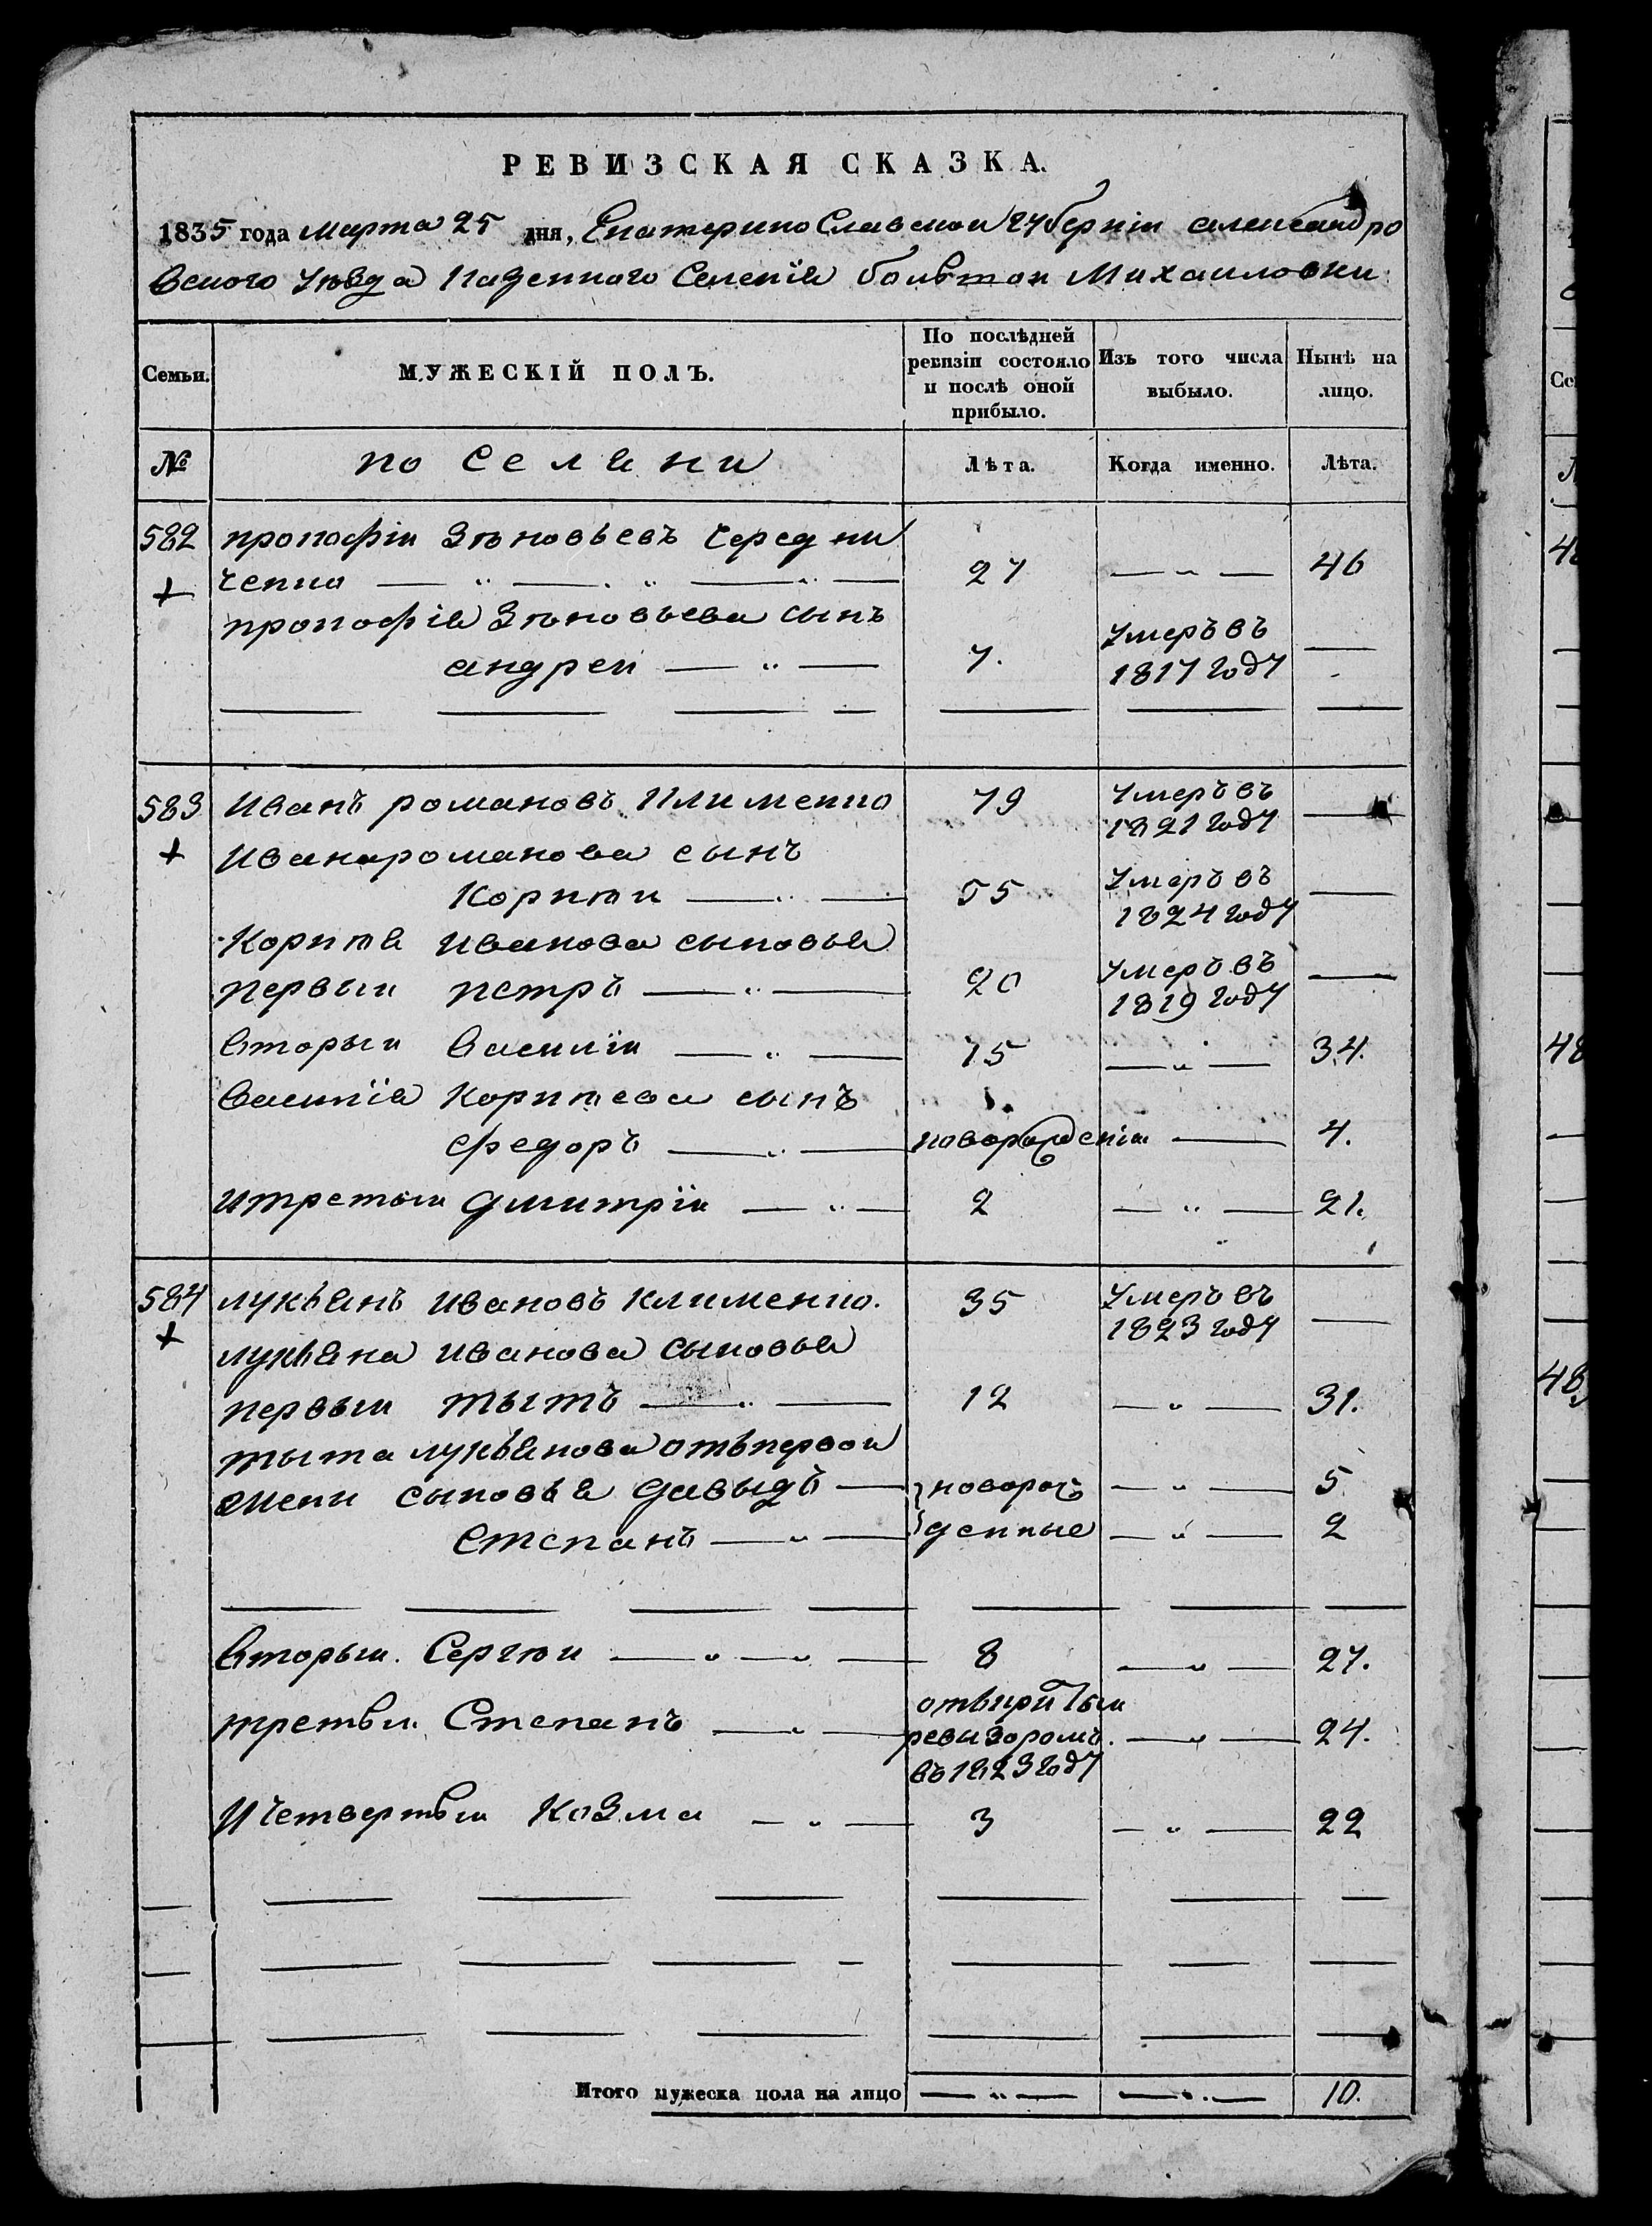 РЕВИЗСКАЯ СКАЗКА.
1835 года марта 25 дня, Екатерино Славской губерніи александро
вского уѣзда Казенного Селенія больтои Михаиловки
Семьи. МУЖЕСКІЙ ПОЛЪ. По послѣдней ревизіи состояло и послѣ оной прибыло. Изъ того числа выбыло. Нынѣ на лицо.
№ по селяни Лѣта. Когда именно. Лѣта.
582 прокофіи Зѣновьевъ Середни
ченко 27 — 46
прокофія Зѣновьева сынъ
андреи 7. умеръ въ 1817 году —
583 Иванъ романовъ Клименко 79 умеръ въ 1821 году —
Ивана романова сынъ
Корнѣи 55 умеръ въ 1824 году —
Корнѣя иванова сыновья
первыи петръ 20 умеръ въ 1819 году —
вторыи василіи 15 — 34.
василія корнѣева сынъ
федоръ новорожденіи — 4.
итретьи дмитріи 2 — 21.
584 лукьянъ ивановъ клименко. 35 умеръ въ 1823 году —
лукьяна иванова сыновья
первыи тытъ 12 — 31.
тыта лукьянова отъпервои
жени сыновья давыдъ новорож — 5
степанъ денные — 2
вторыи. Сергѣи 8 — 27.
третьи. Степанъ откритыи ревизоромъ. въ 1823 году — 24.
И четвертыи Козма 3 — 22
Итого мужеска пола на лицо — — 10.